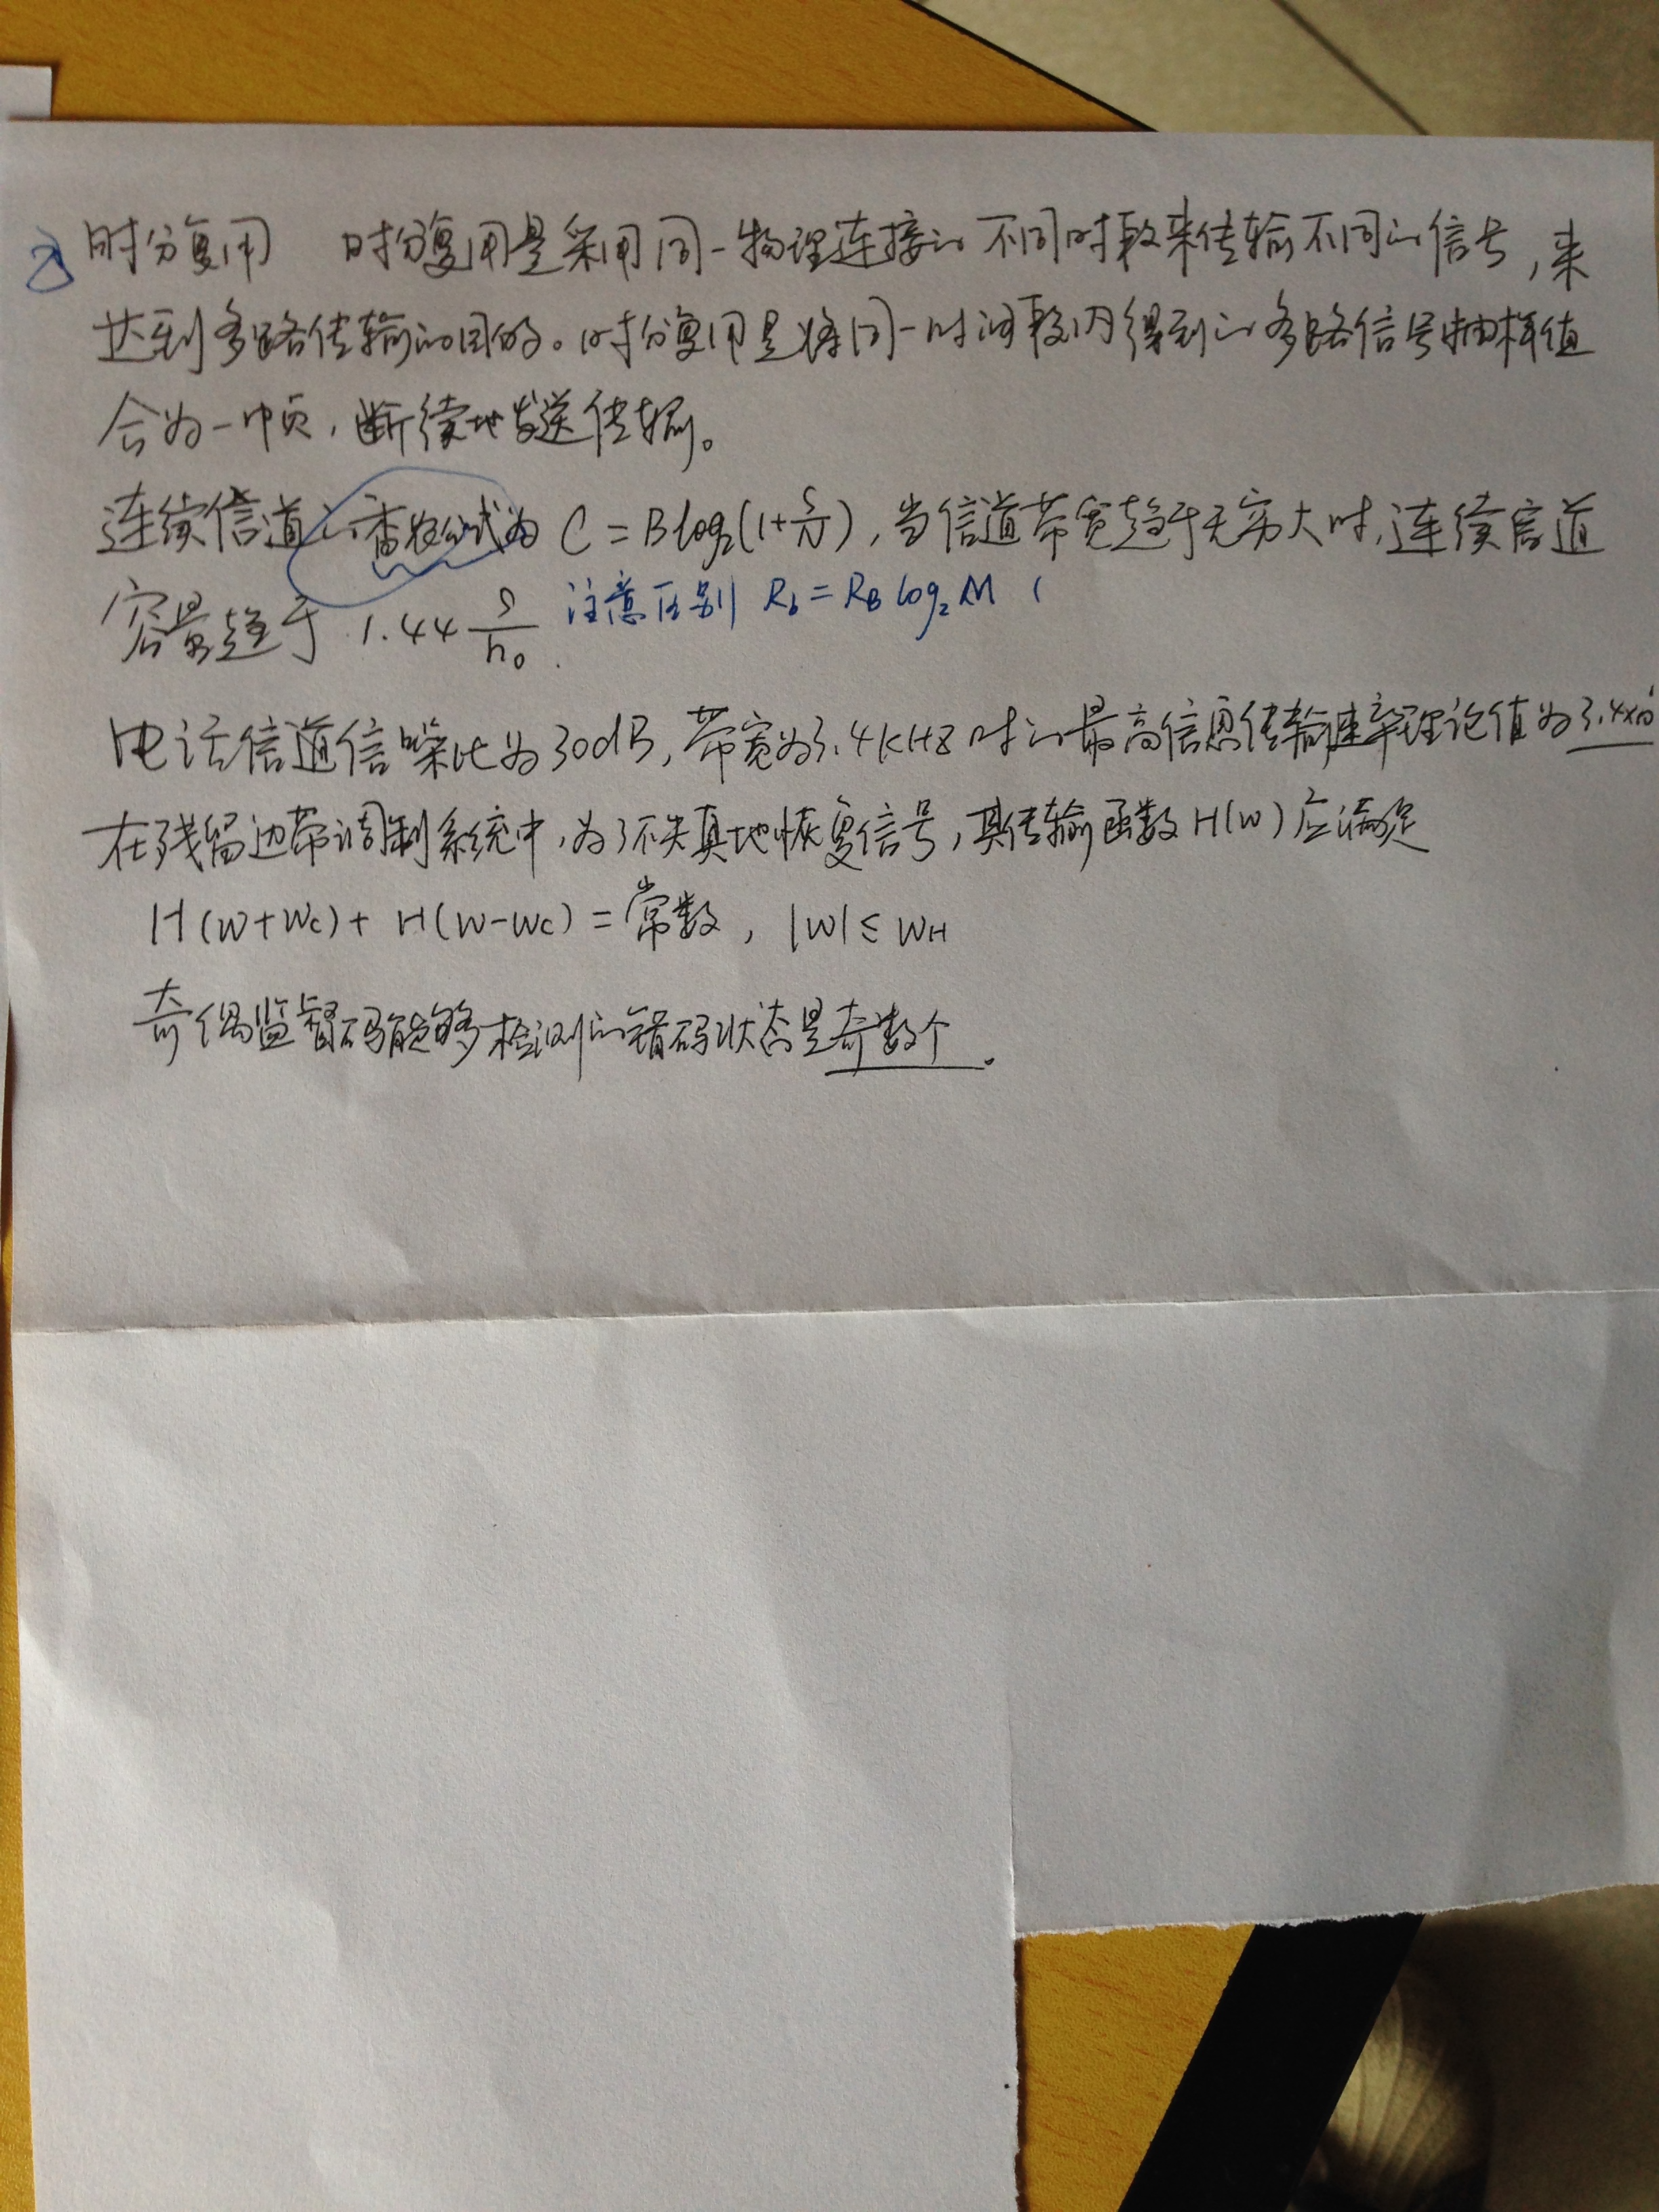 时分复用 时分复用是采用同一物理连接的不同时段来传输不同的信号，来
达到多路传输的目的。时分复用是将同一时间段内得到的多路信号抽样值
合为一帧，断续地发送传输。
连续信道的香农公式为 C=Blog₂(1+S/N)，当信道带宽趋于无穷大时，连续信道
容量趋于 1.44 S/n₀. 注意区别 R_b=R_B log₂M (
电话信道信噪比为30dB，带宽为3.4KHZ时的最高信息传输速率理论值为3.4×10
在残留边带调制系统中，为了不失真地恢复信号，其传输函数H(w)应满足
H(w+wc)+H(w-wc)=常数，|w|≤wH
奇偶监督码能够检测的错码状态是奇数个。